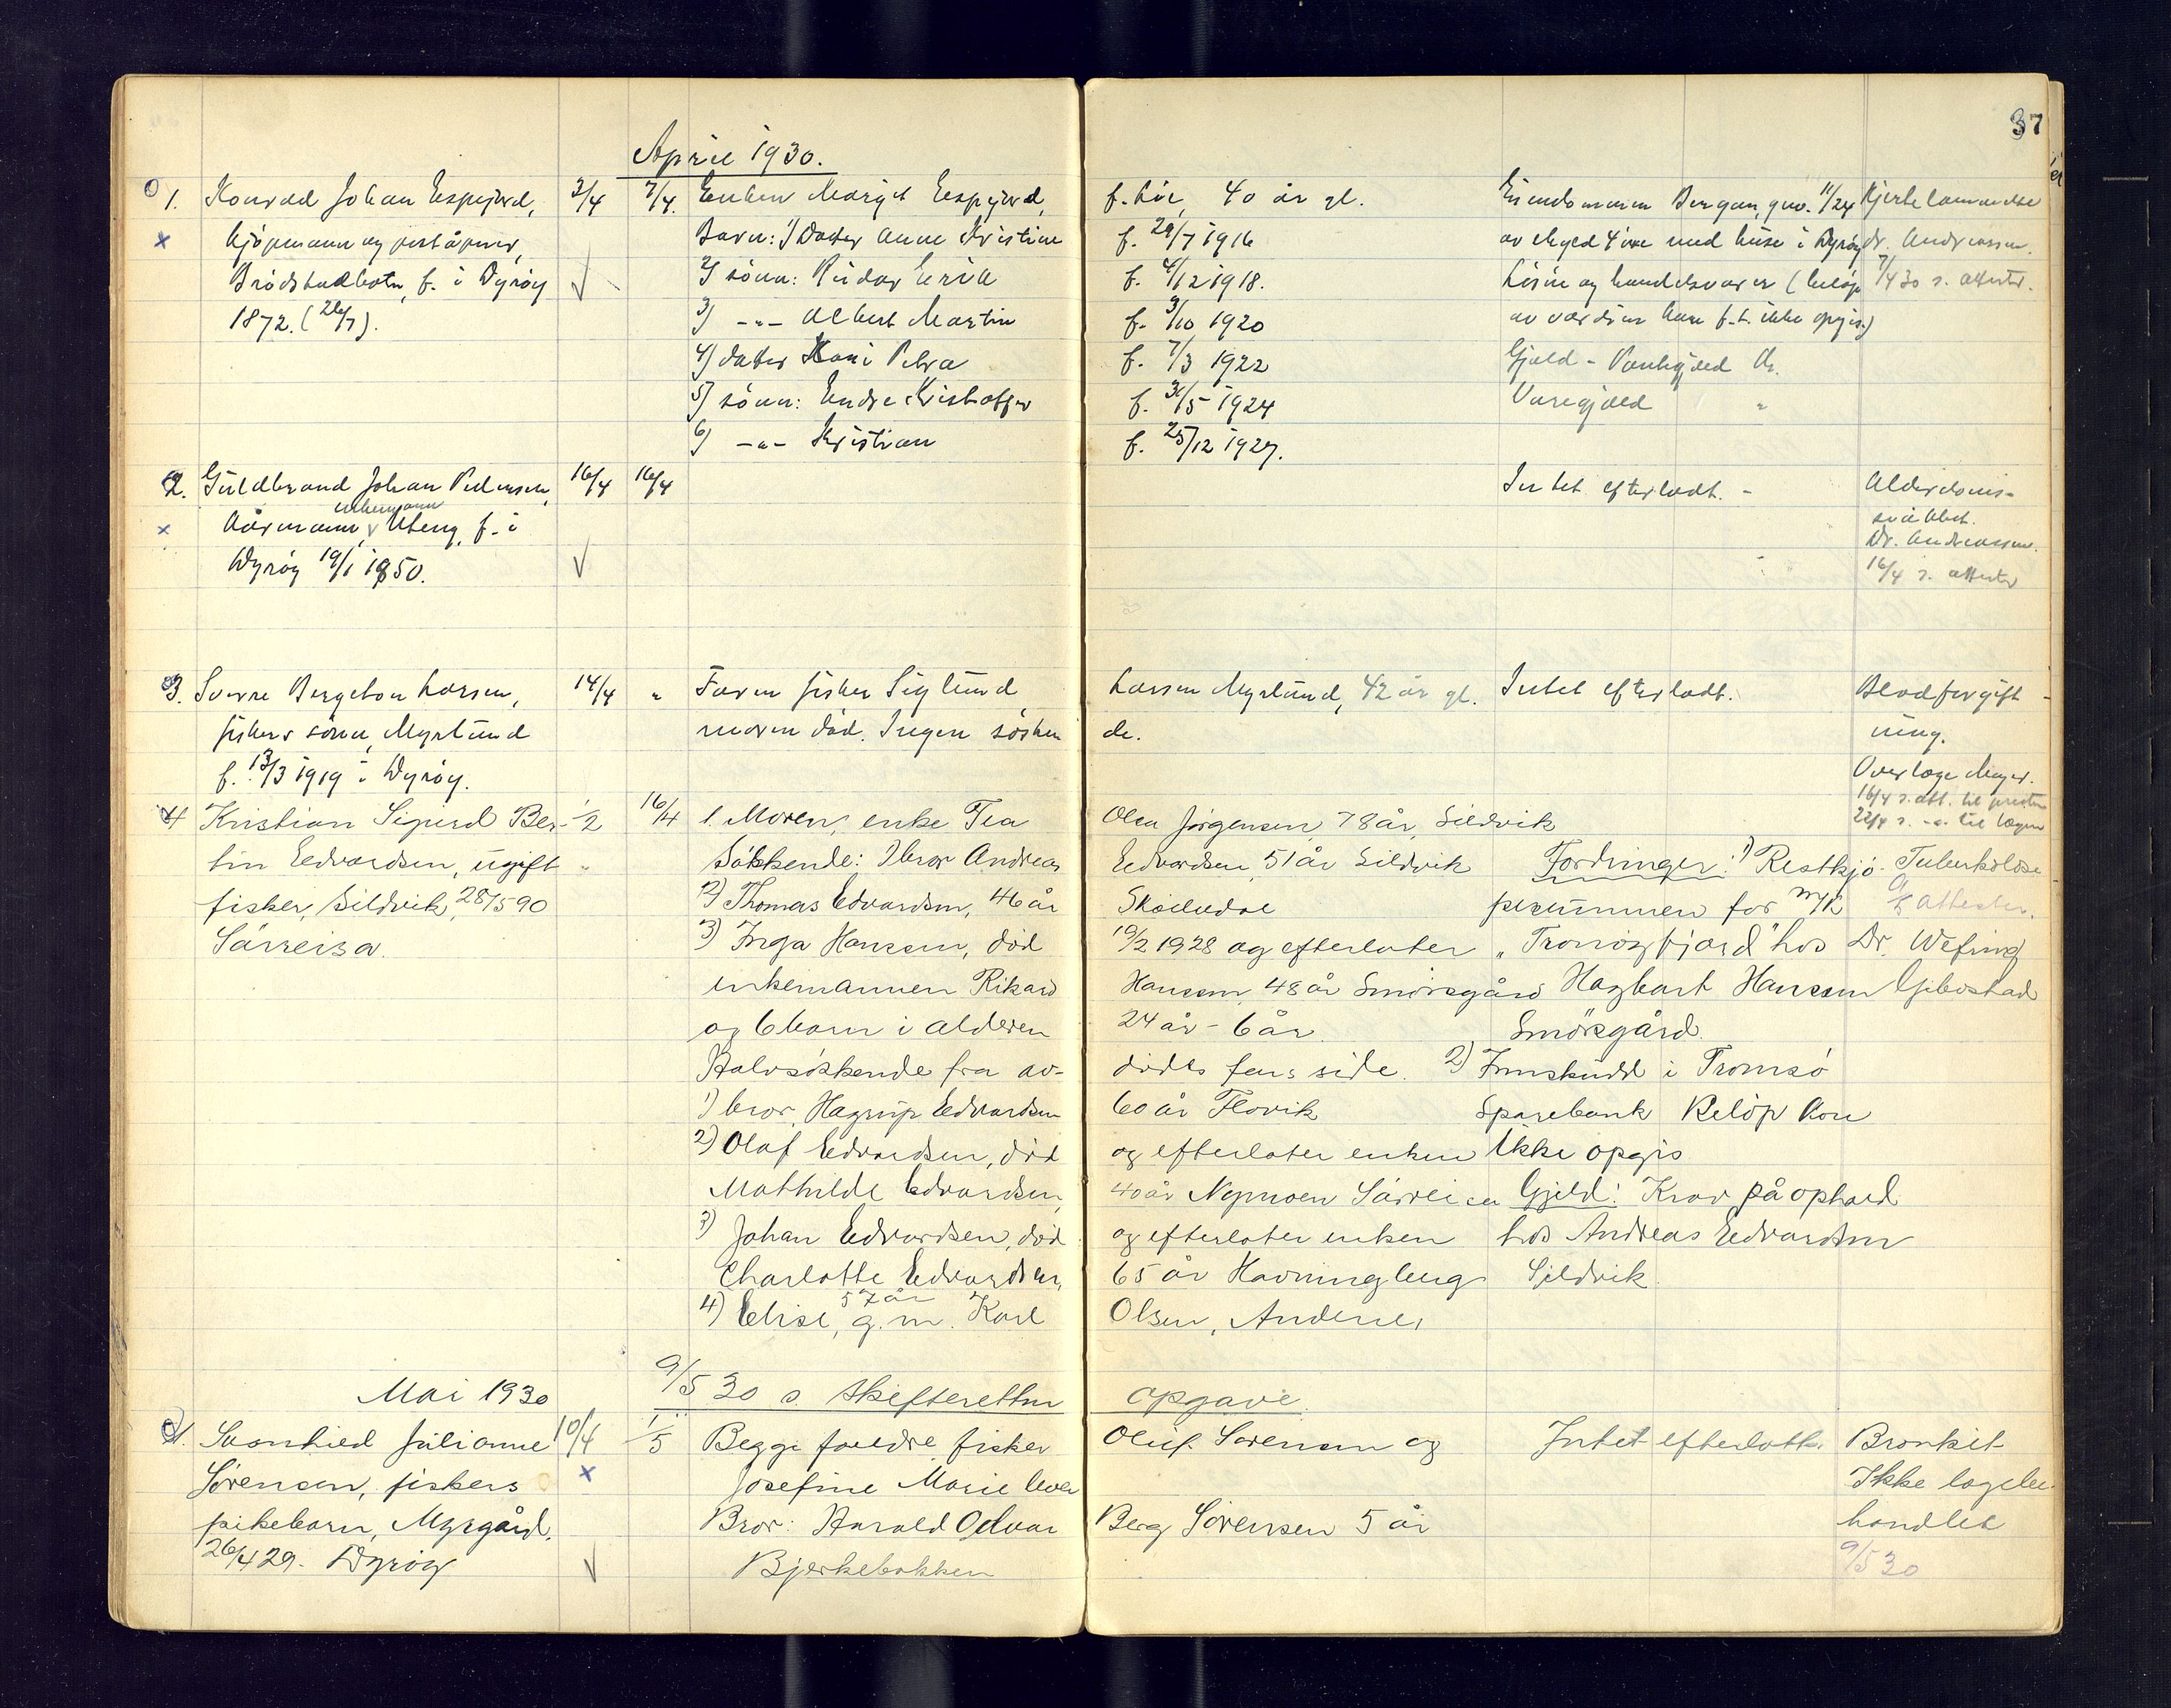 37
April 1930.
1. Konrad Johan Espejord, 3/4 7/4. Enken Margit Espejord, f. Lie, 40 år gl. Eiendommen Bergan, gno. 11/24 Hjertelammelse
kjøpmann og poståpner, Barn: 1) Datter Anne Kristine f. 29/7 1916 av skyld 4 øre med huse i Dyrøy dr. Andreassen.
Brøstadbotn, f. i Dyrøy 2) sønn: Reidar Erik f. 4/12 1918. Løsøre og handelsvarer (beløp 7/4 30 s. attester.
1872. (26/7). 3) -"- Albert Martin f. 3/10 1920 av værdien kan f.t. ikke opgis)
4) datter Petra f. 7/3 1922 Gjæld - Pantegjæld Kr.
5) sønn: Endre Kristoffer f. 31/5 1924 Varegjæld "
6) -"- Kristian f. 25/12 1927.
2. Guldbrand Johan Pedersen, 16/4 16/4 Intet efterladt. - Alderdoms-
enkemann
kårmann, f. i svakhet.
Dr. Andreassen.
Dyrøy 19/1 1850. 16/4 s. attester
3. Sverre Bergeton Larsen, 14/4 " Faren fisker Siglund Larsen Myrlund, 42 år gl. Intet efterladt. Blodforgift-
fiskers sønn, Myrlund moren død. Ingen søsken de. ning.
f. 13/3 1919 i Dyrøy. Overlæge Meyer.
16/4 s. att. til presten
4 Kristian Sigurd Ber- 1/2 16/4 1. Moren, enke Tea Olea Jørgensen, 78 år, Sildvik 22/4 s. -"- til lægen
tin Edvardsen, ugift " Søskende: 1 bror Andreas Edvardsen, 51 år Sildvik Fordringer: 1) Restkjø- Tuberkulose
fisker, Sildvik, 28/5 90 2) Thomas Edvardsen, 46 år pesummen for m/k attester.
Sørreisa. 3) Inga Hansen, død 19/2 1928 og efterlater "Tromsøfjord" hos Dr. Wefring
enkemannen Rikard Hansen, 48 år Smørsgård Hagbart Hansen Gibostad
og 6 barn i alderen 24 år - 6 år. Smørsgård.
Halvsøskende fra av- dødes fars side. 2) Innskudd i Tromsø
1) bror, Hagrup Edvardsen 60 år Flovik Sparebank Beløp kan
2) Olaf Edvardsen, død og efterlater enken ikke opgis
Mathilde Edvardsen, 40 år Nymoen Sørreisa Gjeld: Krav på ophold
3) Johan Edvardsen, død og efterlater enken hos Andreas Edvardsen
Charlotte Edvardsen, 65 år Sildvik.
57 år
4) Elise, g. m. Karl Olsen, Andenes
Mai 1930 9/5 30 s. skifteretten opgave.
1. Svanhild Julianne 10/4 1/5 Begge foreldre, fisker Oluf Sørensen og Intet efterlatt. Bronkit
Sørensen, fiskers Josefine Marie Ikke lægebe-
pikebarn, Myrgård, Bror: Harald Odvar Berg Sørensen 5 år handlet
26/4 29. Dyrøy Bjerkebakken 9/5 30